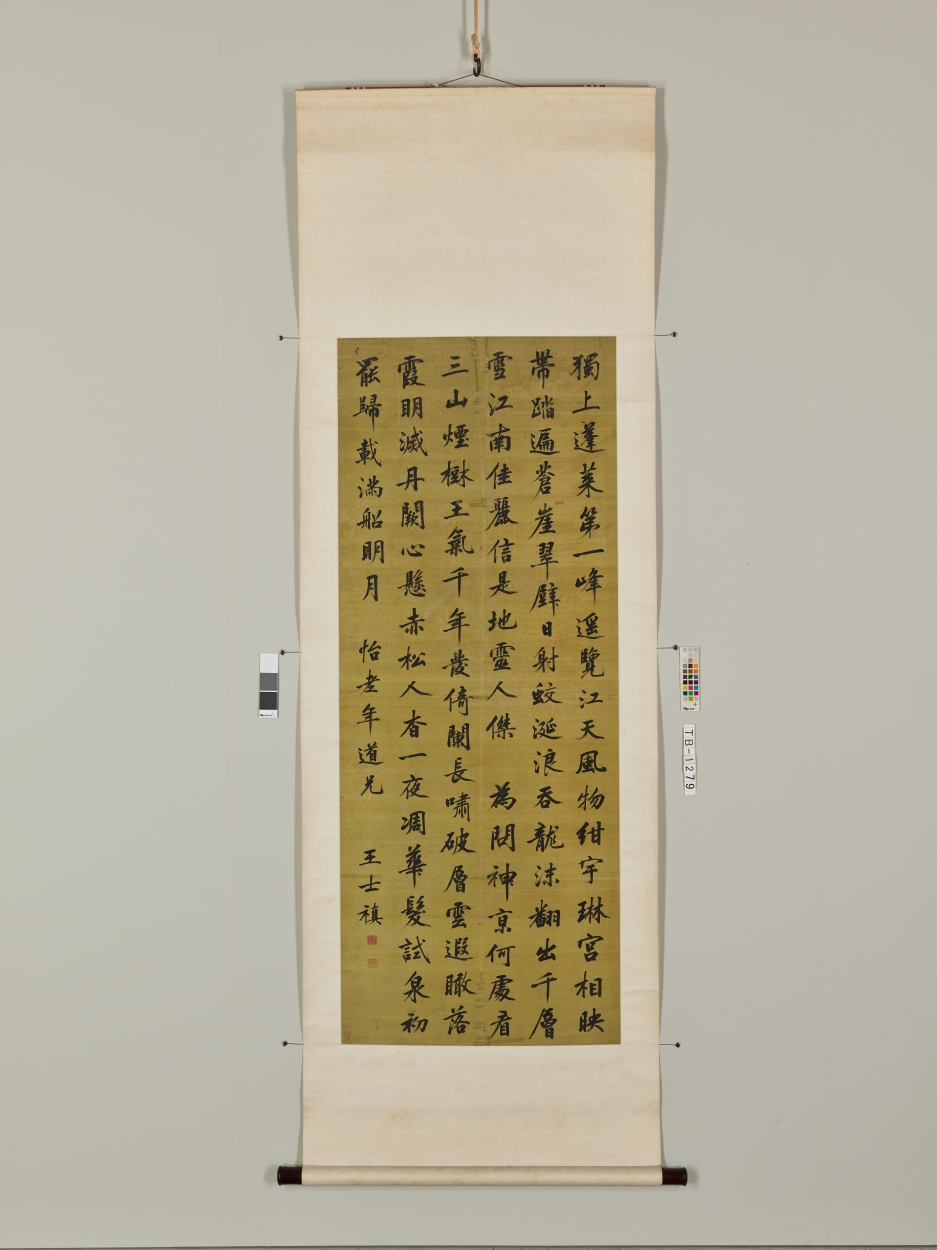 獨上蓬萊第一峰遥覽江天風物紺宇琳宮相映
帶踏遍蒼崖翠壁日射蛟涎浪吞龍沫翻出千層
雪江南佳麗信是地靈人傑 為問神京何處看
三山煙樹王氣千年發倚闌長嘯破層雲遐瞰落
霞眀滅丹闕心懸赤松人杳一夜凋華髮試泉初
罷歸載滿船眀月 怡老年道兄 王士禛
TB-1279